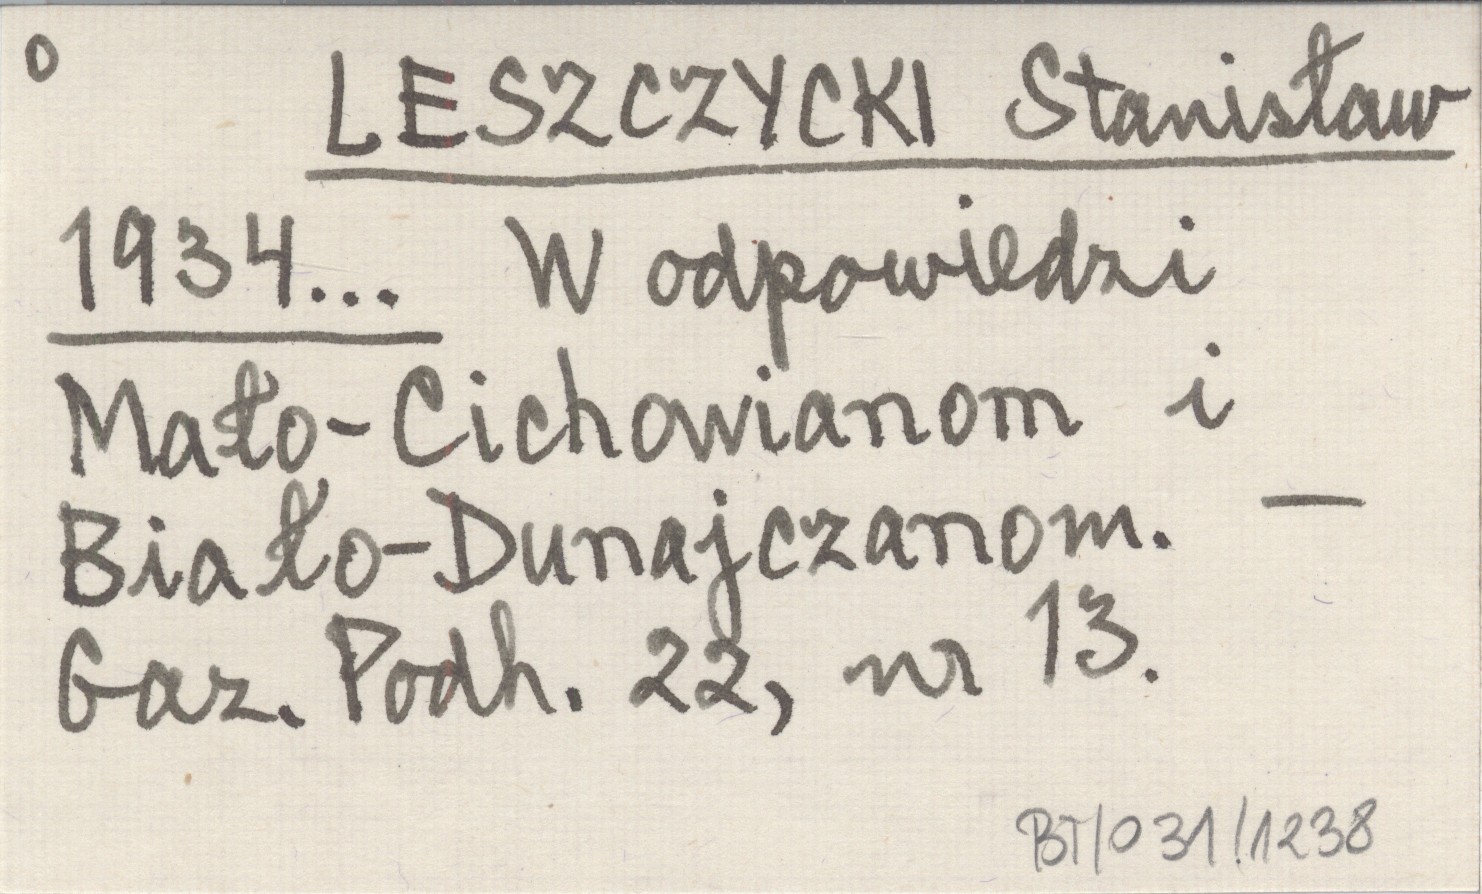 o
LESZCZYCKI Stanisław
1934... W odpowiedzi
Mało-Cichowianom i
Biało-Dunajczanom. —
Gaz. Podh. 22, nr 13.
BT/031/1238